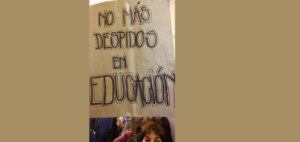 NO MÁS
DESPIDOS
EN
EDUCACIÓN